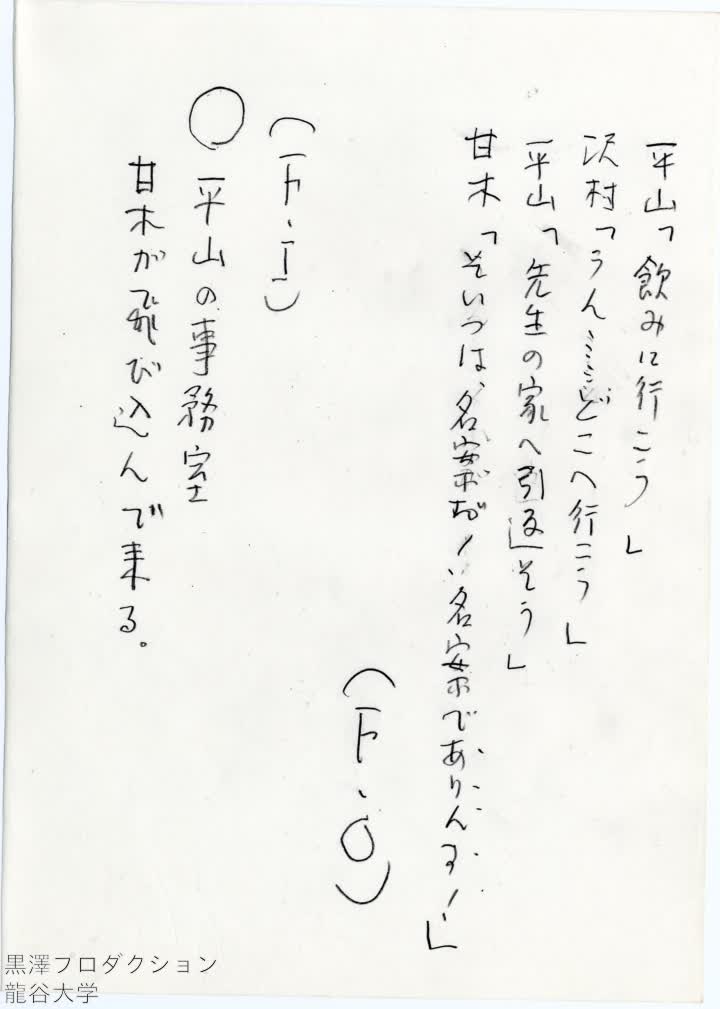 平山「飲みに行こう」
沢村「うん……どこへ行こう」
平山「先生の家へ引返そう」
甘木「そいつは、名案だ！名案でありんす！」
（F・O）
（F・I）
○平山の事務室
甘木が飛び込んで来る。
黒澤プロダクション
龍谷大学